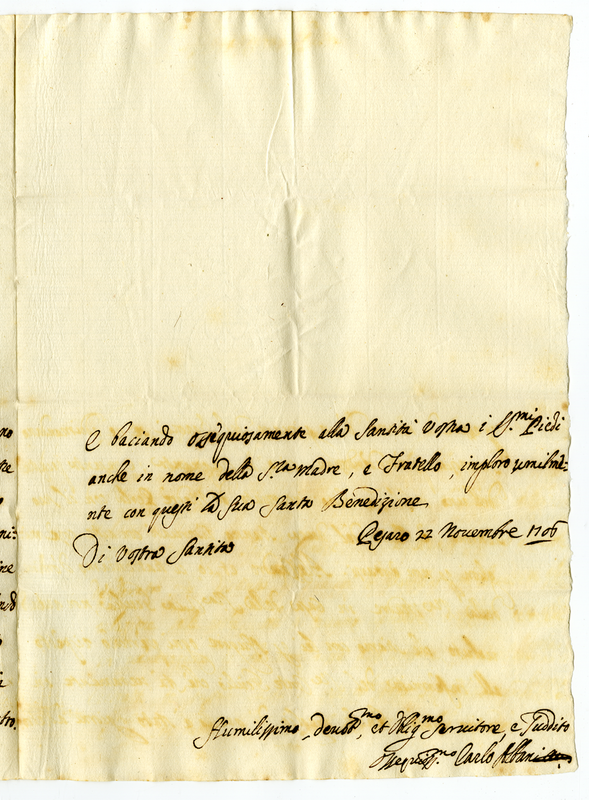 e baciando ossequiosamente alla Santità Vostra i SS.mi Piedi
anche in nome della S.ra Madre, e Fratello, imploro umilme-
nte con questi la sua Santa Benedizione
Pesaro 22 Novembre 1706
Di Vostra Santità
Humilissimo, devot.mo, et oblig.mo servitore, e Suddito
Ossequiss.mo Carlo Albani